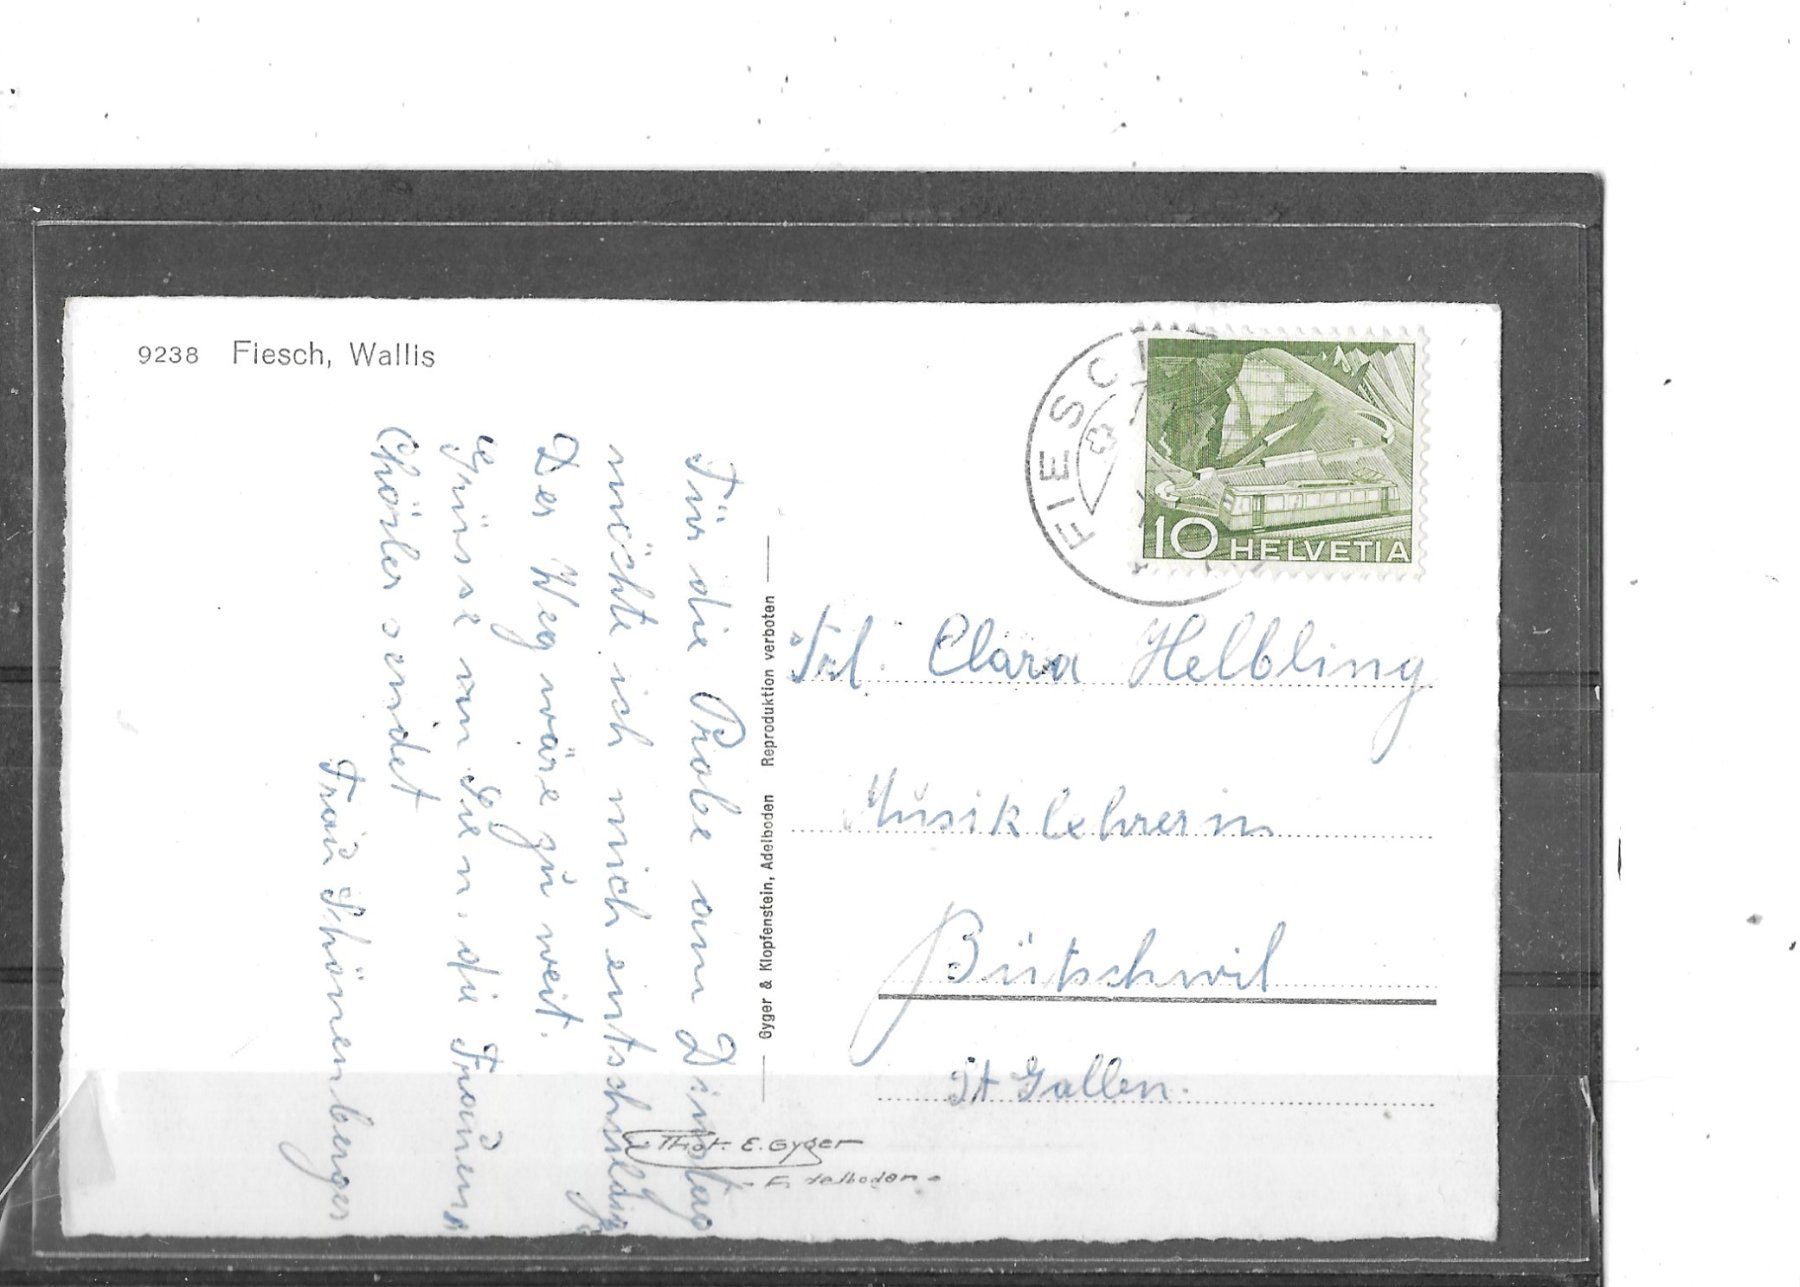 9238 Fiesch, Wallis
FIESCH
10 HELVETIA
Für die Probe am Dinstag
möchte ich mich entschuldig
Der Weg wäre zu weit.
Grüsse von hier. die Frauen
Chörler sendet
Frau Schönenberger
Gyger & Klopfenstein, Adelboden Reproduktion verboten
Frl. Clara Helbling
Musiklehrerin
Bütschwil
St Gallen.
Phot. E. Gyger
Adelboden